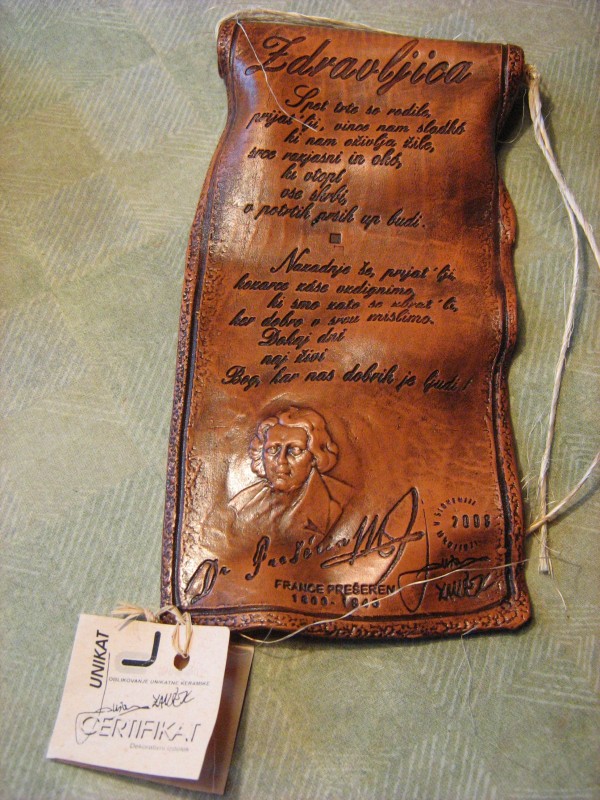 Zdravljica
Spet trte so rodile,
prijat'lji, vince nam sladkó
ki nam oživlja žile,
srce razjasni in okó,
ki vtopi
vse skrbi,
v potrtih prsih up budi.
Nazadnje še, prijat'lji,
kozarce záse vzdignimo,
ki smo zato se zbrat'li,
ker dobro v srcu mislimo.
Dokaj dni
naj živi
Bog, kar nas dobrih je ljudi!
Dr. Prešérin
FRANCE PREŠEREN
1800-1849
V SLOVENIJI
2008
UNIKAT
OBLIKOVANJE UNIKATNE KERAMIKE
CERTIFIKAT